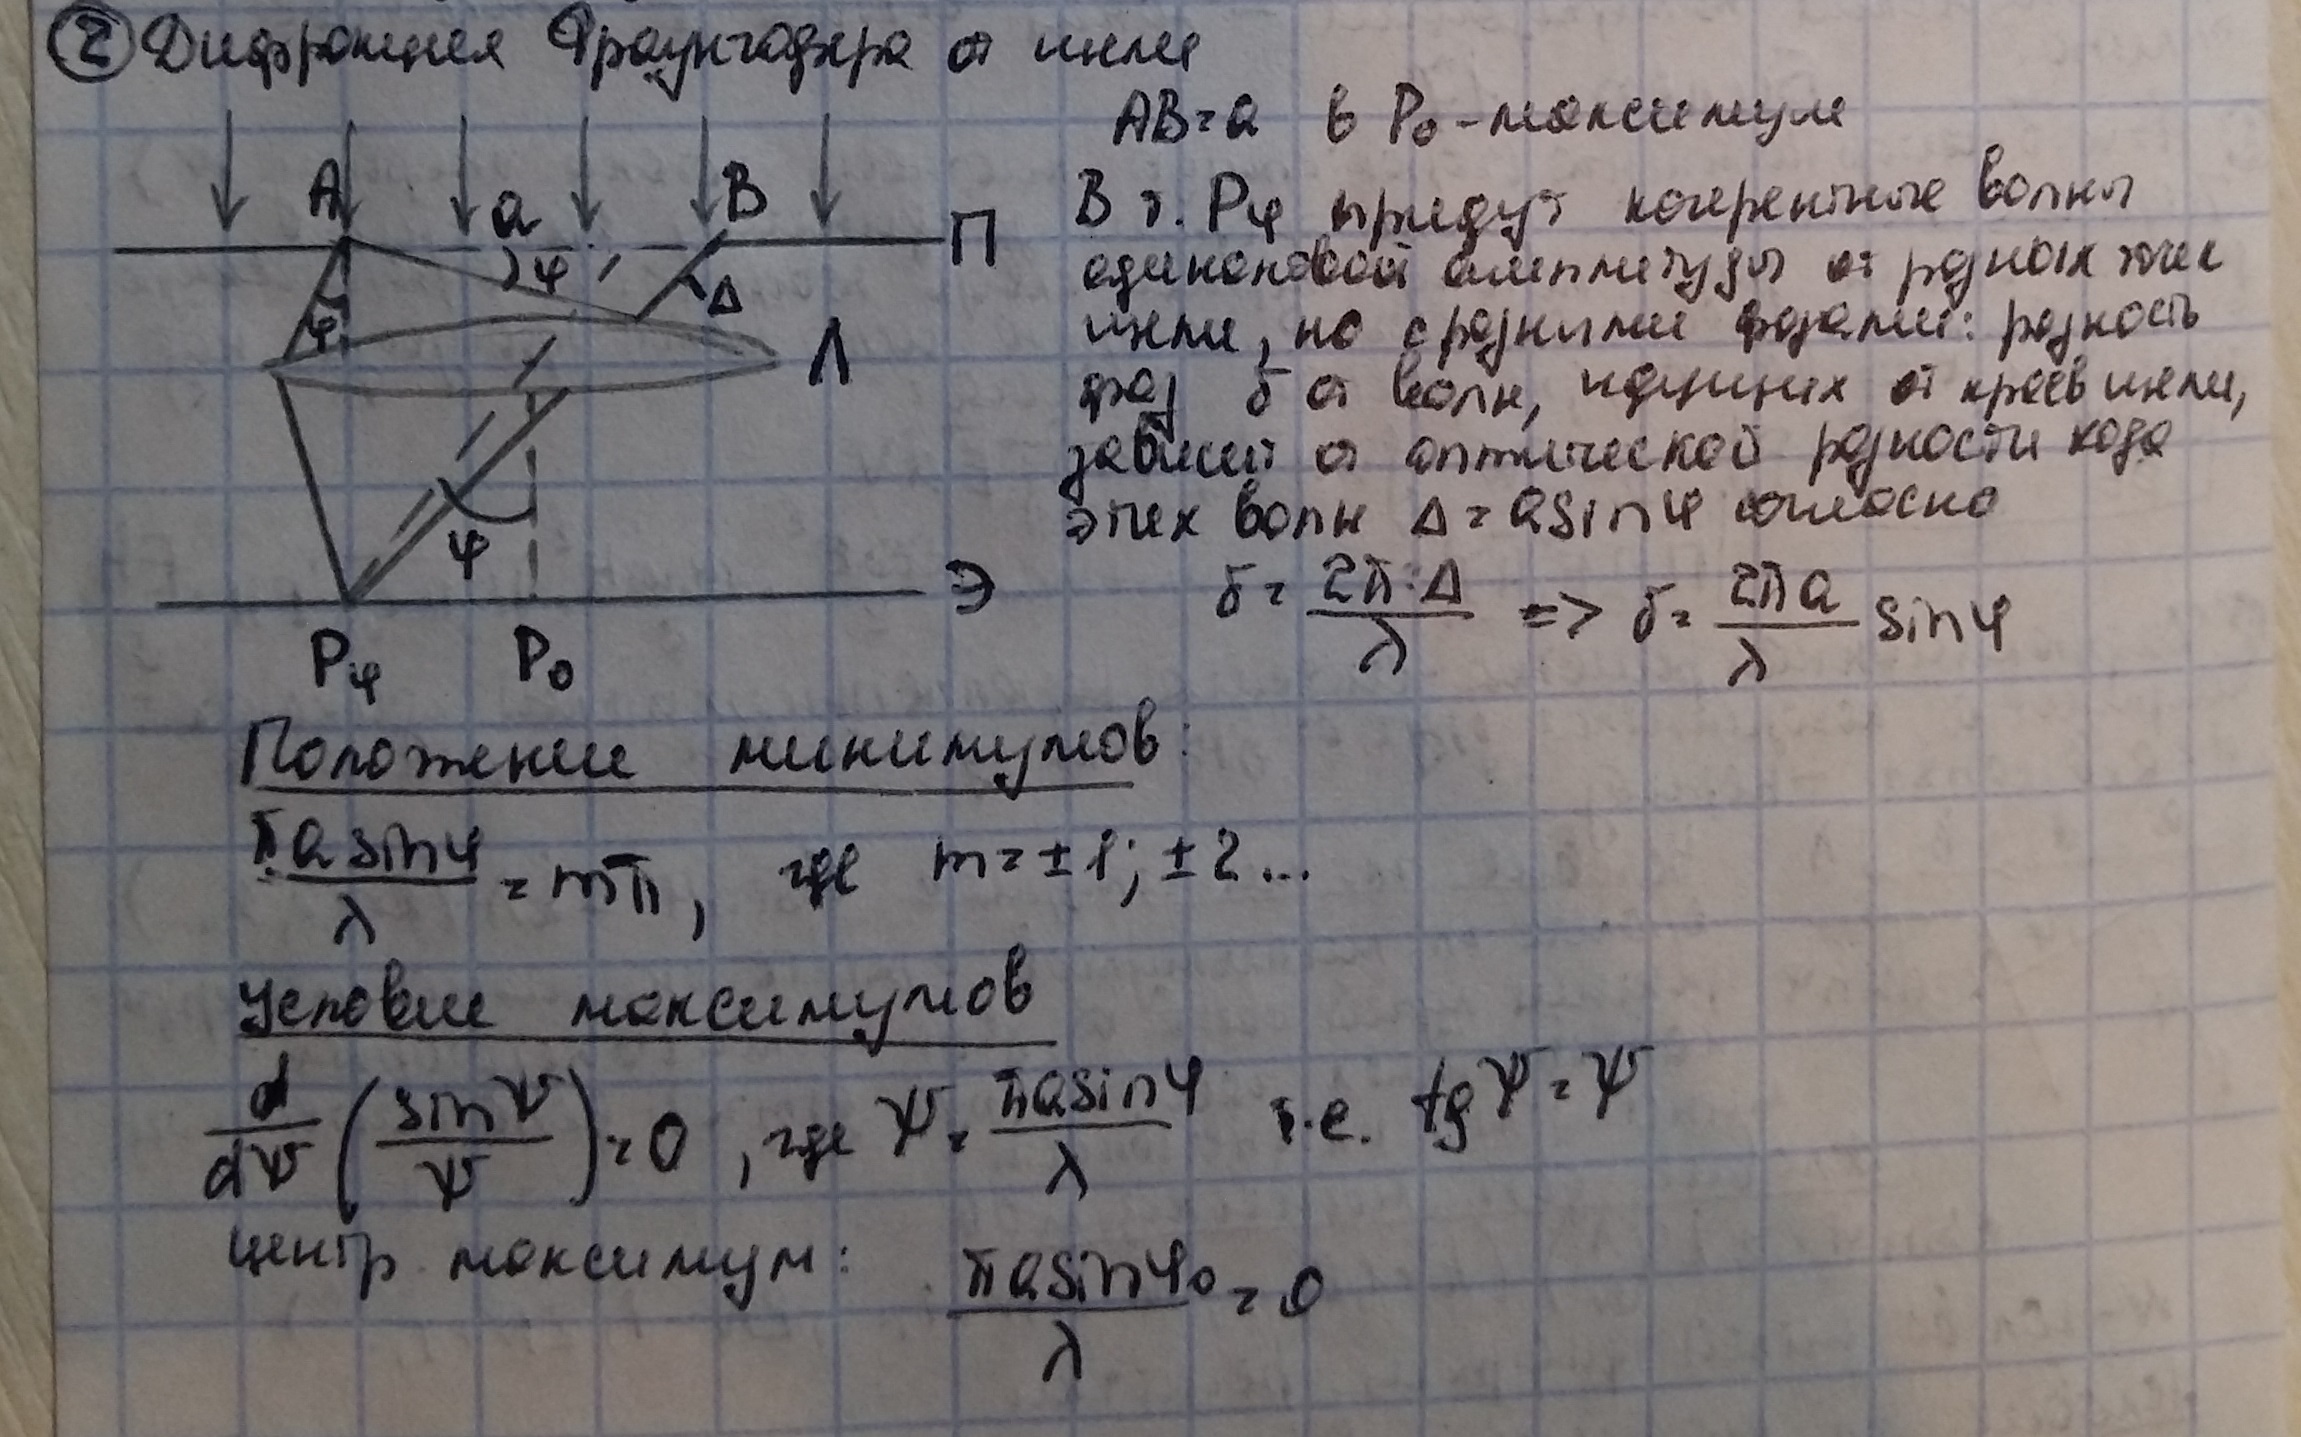 ② Дифракция Фраунгофера от щели
AB = a в P₀ - максимум
A a B
П
φ φ Δ
Л
φ
Э
Pφ P₀
В т. Pφ придут когерентные волны
одинаковой амплитуды от разных точек
щели, но с разными фазами: разность
фаз δ от волн, идущих от краёв щели,
зависит от оптической разности хода
этих волн Δ = a sin φ согласно
δ = 2π·Δ / λ => δ = 2πa / λ sin φ
Положение минимумов:
πa sin φ / λ = mπ, где m = ±1; ±2...
Условие максимумов
d/dΨ (sin Ψ / Ψ) = 0, где Ψ = πa sin φ / λ т.е. tg Ψ = Ψ
центр. максимум: πa sin φ₀ / λ = 0